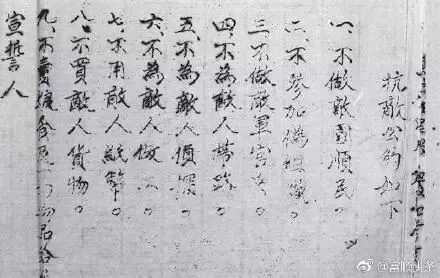 抗敵公約如下
一、不做敵國順民。
二、不參加偽組織。
三、不做敵軍官兵。
四、不為敵人帶路。
五、不為敵人偵探。
六、不為敵人做工。
七、不用敵人紙幣。
八、不買敵人貨物。
九、不賣糧食及
宣誓人
@富顺头条